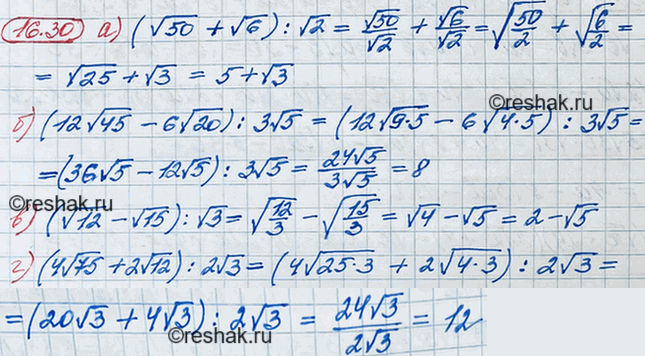 16.30 а) (√50 + √6) : √2 = √50/√2 + √6/√2 = √(50/2) + √(6/2) =
= √25 + √3 = 5 + √3
©reshak.ru
б) (12√45 − 6√20) : 3√5 = (12√(9·5) − 6√(4·5)) : 3√5 =
= (36√5 − 12√5) : 3√5 = 24√5/3√5 = 8
©reshak.ru
в) (√12 − √15) : √3 = √(12/3) − √(15/3) = √4 − √5 = 2 − √5
г) (4√75 + 2√12) : 2√3 = (4√(25·3) + 2√(4·3)) : 2√3 =
= (20√3 + 4√3) : 2√3 = 24√3/2√3 = 12
©reshak.ru